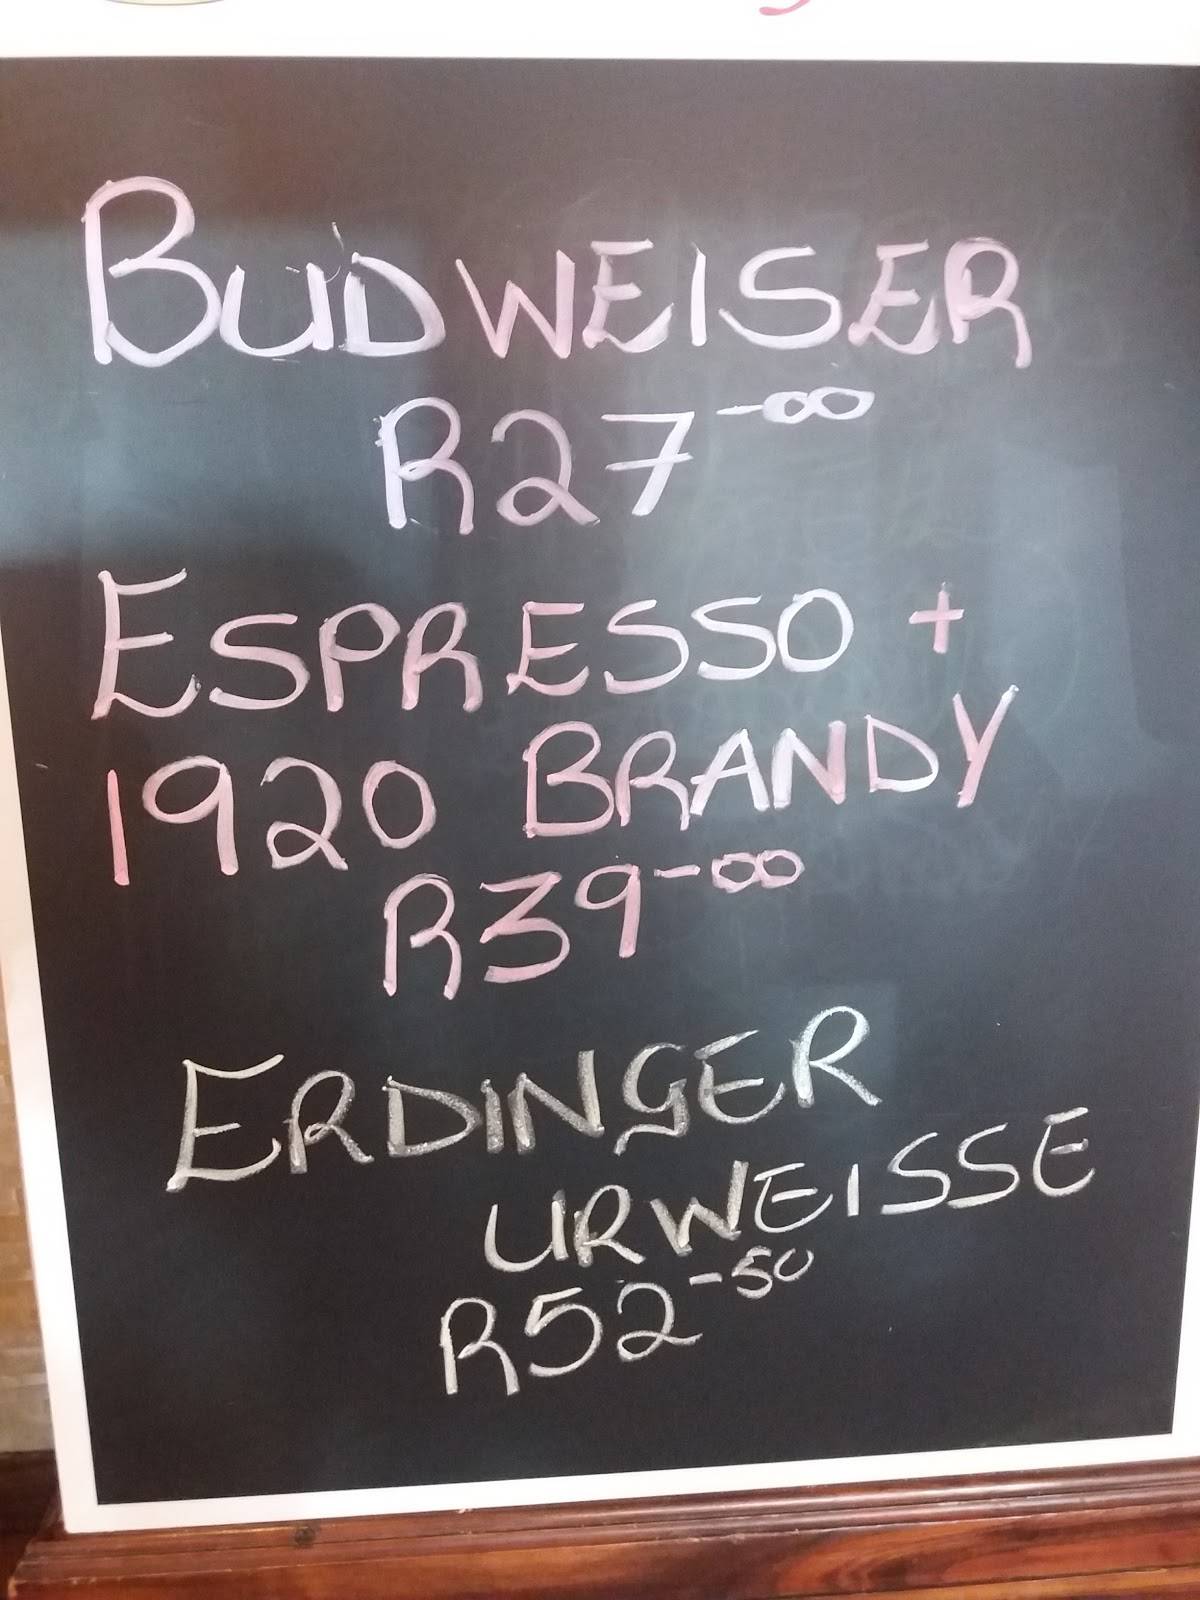 BUDWEISER
R27-00
ESPRESSO +
1920 BRANDY
R39-00
ERDINGER
URWEISSE
R52-50